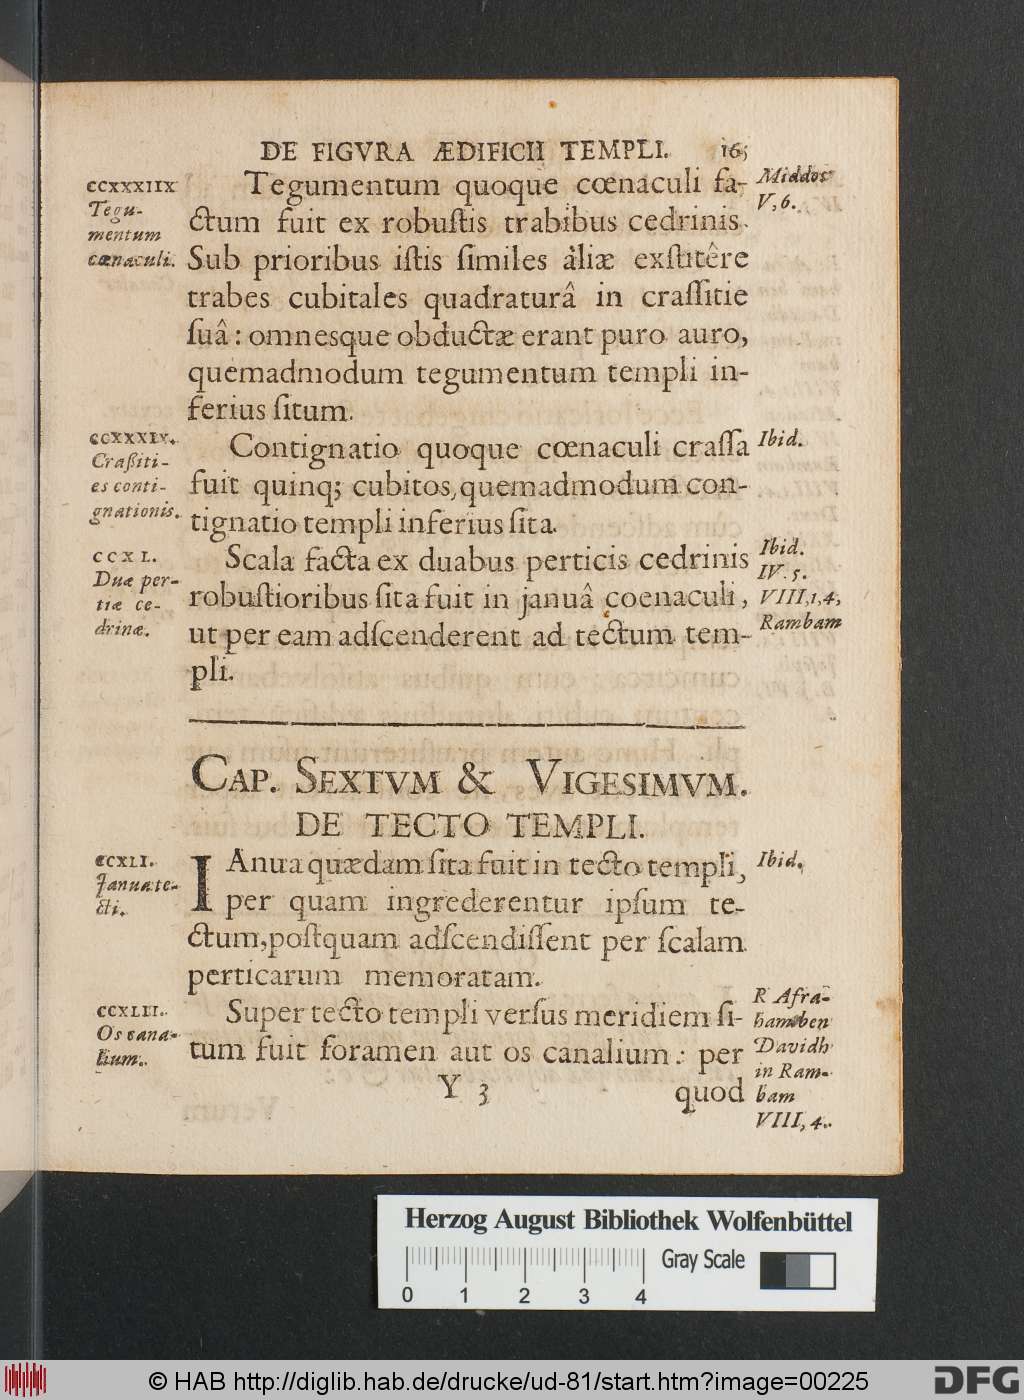 DE FIGVRA ÆDIFICII TEMPLI. 165
CCXXXIIX
Tegu-
mentum
cœnaculi.
Tegumentum quoque cœnaculi fa-
ctum fuit ex robuſtis trabibus cedrinis.
Sub prioribus iſtis ſimiles áliæ exſtitêre
trabes cubitales quadraturâ in craſſitie
ſuâ: omnesque obductæ erant puro auro,
quemadmodum tegumentum templi in-
ferius ſitum.
Middot
V, 6.
CCXXXIX.
Craßiti-
es conti-
gnationis.
Contignatio quoque cœnaculi craſſa
fuit quinq; cubitos, quemadmodum con-
tignatio templi inferius ſita.
Ibid.
CCXL.
Duæ per-
tiæ ce-
drinæ.
Scala facta ex duabus perticis cedrinis
robuſtioribus ſita fuit in januâ coenaculi,
ut per eam adſcenderent ad tectum tem-
pli.
Ibid.
IV. 5.
VIII, 1, 4,
Rambam
CAP. SEXTVM & VIGESIMVM.
DE TECTO TEMPLI.
CCXLI.
Janua te-
cti.
IAnua quædam ſita fuit in tecto templi,
per quam ingrederentur ipſum te-
ctum, poſtquam adſcendiſſent per ſcalam
perticarum memoratam.
Ibid.
CCXLII.
Os cana-
lium.
Super tecto templi verſus meridiem ſi-
tum fuit foramen aut os canalium: per
R Afra-
ham ben
Davidh
in Ram-
bam
VIII, 4.
Y 3
quod
Herzog August Bibliothek Wolfenbüttel
Gray Scale
0 1 2 3 4
© HAB http://diglib.hab.de/drucke/ud-81/start.htm?image=00225
DFG